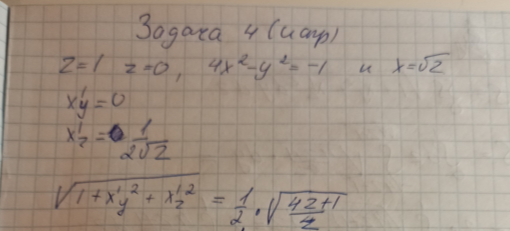 Задача 4 (испр)
z=1 z=0, 4x²-y²=-1 и x=√z
x'y=0
x'z=1/(2√z)
√(1+x'y²+x'z²) = 1/2·√((4z+1)/z)